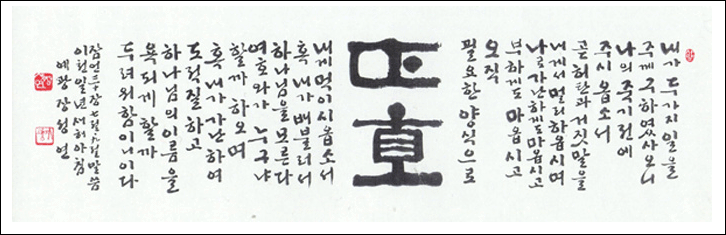 내가 두가지 일을
주께 구하였사오니
나의 죽기 전에
주시옵소서
곧 허탄과 거짓말을
내게서 멀리 하옵시며
나로 가난하게도 마옵시고
부하게도 마옵시고
오직
필요한 양식으로
正直
내게 먹이시옵소서
혹 내가 배불러서
하나님을 모른다
여호와가 누구냐
할까 하오며
혹 내가 가난하여
도적질하고
하나님의 이름을
욕되게 할까
두려워함이니이다
잠언 三十장 七절 말씀
이천일년 새해 아침
예광 장성연